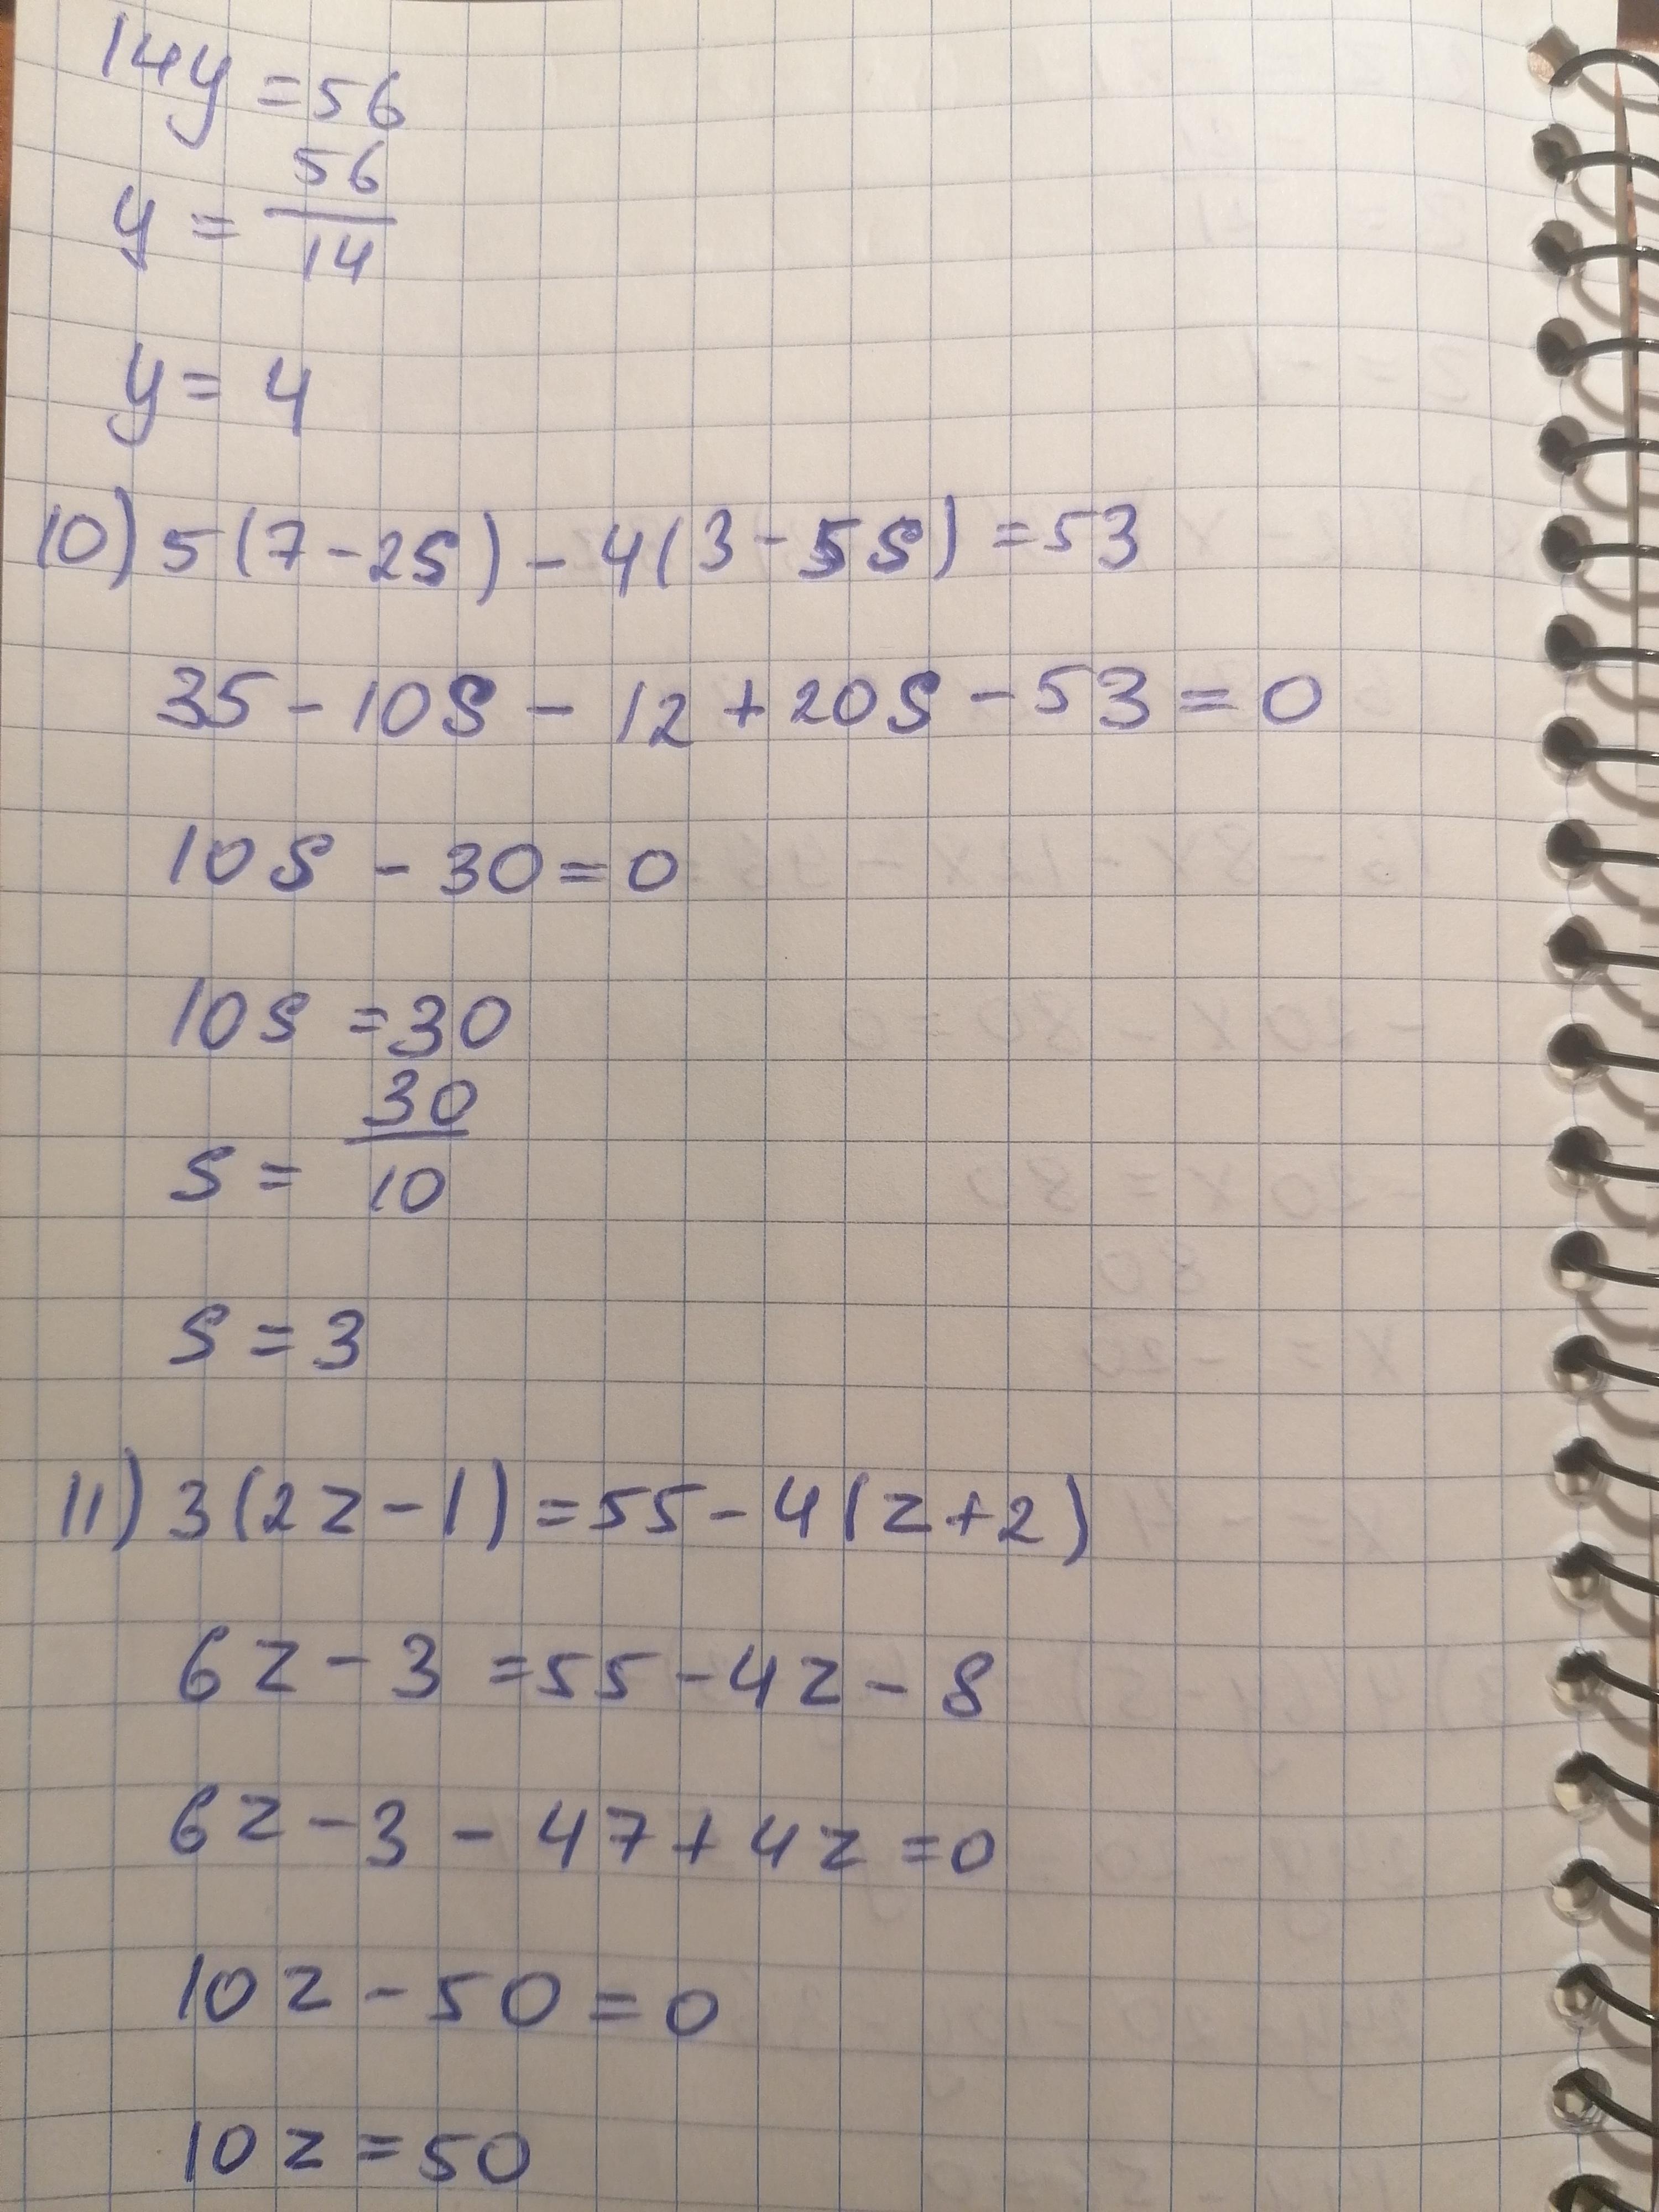 14y = 56
y = 56/14
y = 4
10) 5(7 - 2s) - 4(3 - 5s) = 53
35 - 10s - 12 + 20s - 53 = 0
10s - 30 = 0
10s = 30
s = 30/10
s = 3
11) 3(2z - 1) = 55 - 4(z + 2)
6z - 3 = 55 - 4z - 8
6z - 3 - 47 + 4z = 0
10z - 50 = 0
10z = 50